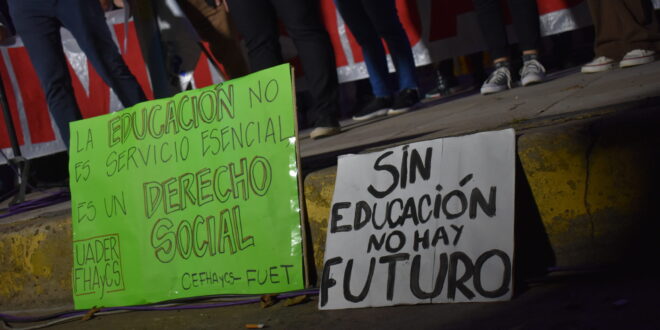 LA EDUCACIÓN NO
ES SERVICIO ESENCIAL
ES UN DERECHO
SOCIAL
UADER
FHAyCS
CEFHAyCS-FUET
SIN
EDUCACIÓN
NO HAY
FUTURO